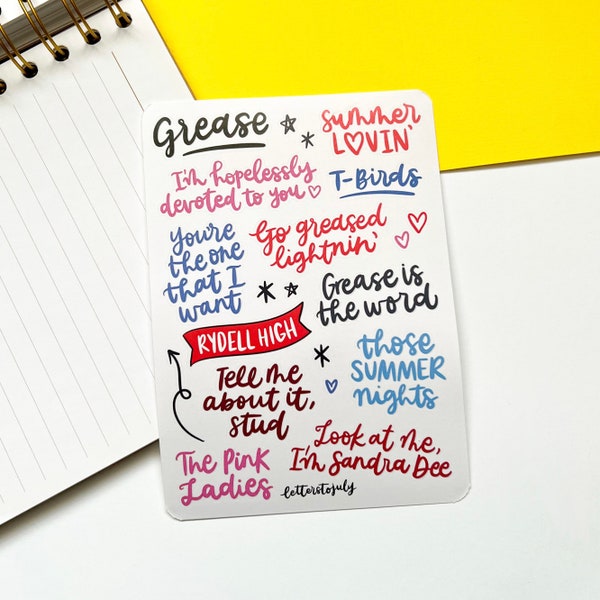 Grease
summer
LOVIN'
I'm hopelessly
devoted to you
T-Birds
You're
the one
that I
want
Go greased
lightnin'
Grease is
the word
RYDELL HIGH
those
SUMMER
nights
Tell me
about it,
stud
Look at me,
I'm Sandra Dee
The Pink
Ladies
letterstojuly